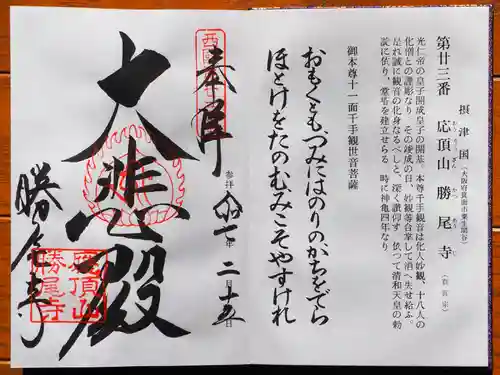 摂津国(大阪府箕面市粟生間谷)
第廿三番 応頂山勝尾寺(真言宗)
おうちょうざん かつおうじ
光仁帝の皇子開成皇子の開基、本尊千手観音は化人妙観、十八人の
化僧との謹彫なり その竣成の日、妙観等合掌して消へ失せ給ふ。
是れ誠に観音の化身なるべしと、深く讃仰す 依って清和天皇の勅
諚に依り、堂塔を建立せらる 時に神亀四年なり
御本尊十一面千手観世音菩薩
おもくとも、つみにはのりのかちをでら
ほとけをたのむみこそやすけれ
奉拝
参拝 令和七年 二月十五日
大悲殿
勝尾寺
應頂山
勝尾寺